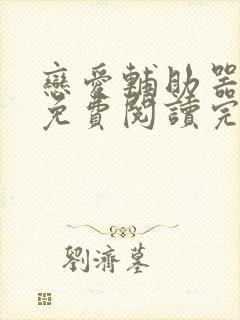 戀愛輔助器
免費閱讀完
劉濟墓